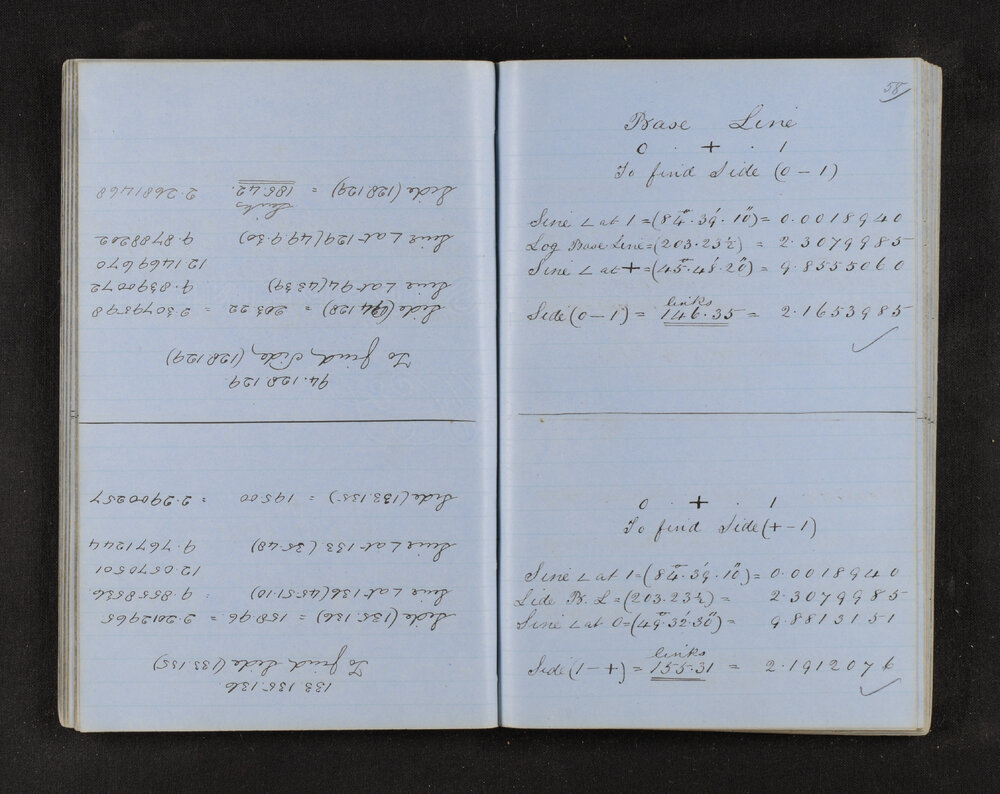 133.135.136.
To find Side (133.135)
Side (135.136) = 158.96 = 2.2012965
Sine ∠ at 136 (45.51.10) = 9.8558536
12.0570501
Sine ∠ at 133 (35.48) 9.7671244
Side (133.135) = 195.00 = 2.2900257
94.128.129.
To find Side, (128.129)
Side (94 128) = 203.22 = 2.3079598
Sine ∠ at 94 (43 39) 9.8390072
12.1469670
Sine ∠ at 129 (49.9.30) 9.8788202
Links
Side (128 129) = 185.42. 2.2681468
58
Base Line
0 . + . 1
To find Side (0 – 1)
Sine ∠ at 1 = (84°. 39'. 10") = 0.0018940
Log Base Line = (203.23½) = 2.3079985
Sine ∠ at + = (45°. 48'. 20") = 9.8555060
links
Side (0 – 1) = 146.35 = 2.1653985
0 . + . 1
To find Side (+ – 1)
Sine ∠ at 1 = (84°. 39'. 10") = 0.0018940
Side B. L = (203.23½) = 2.3079985
Sine ∠ at 0 = (49°. 32'. 30") = 9.8813151
links
Side (1 – +) = 155.31 = 2.1912076